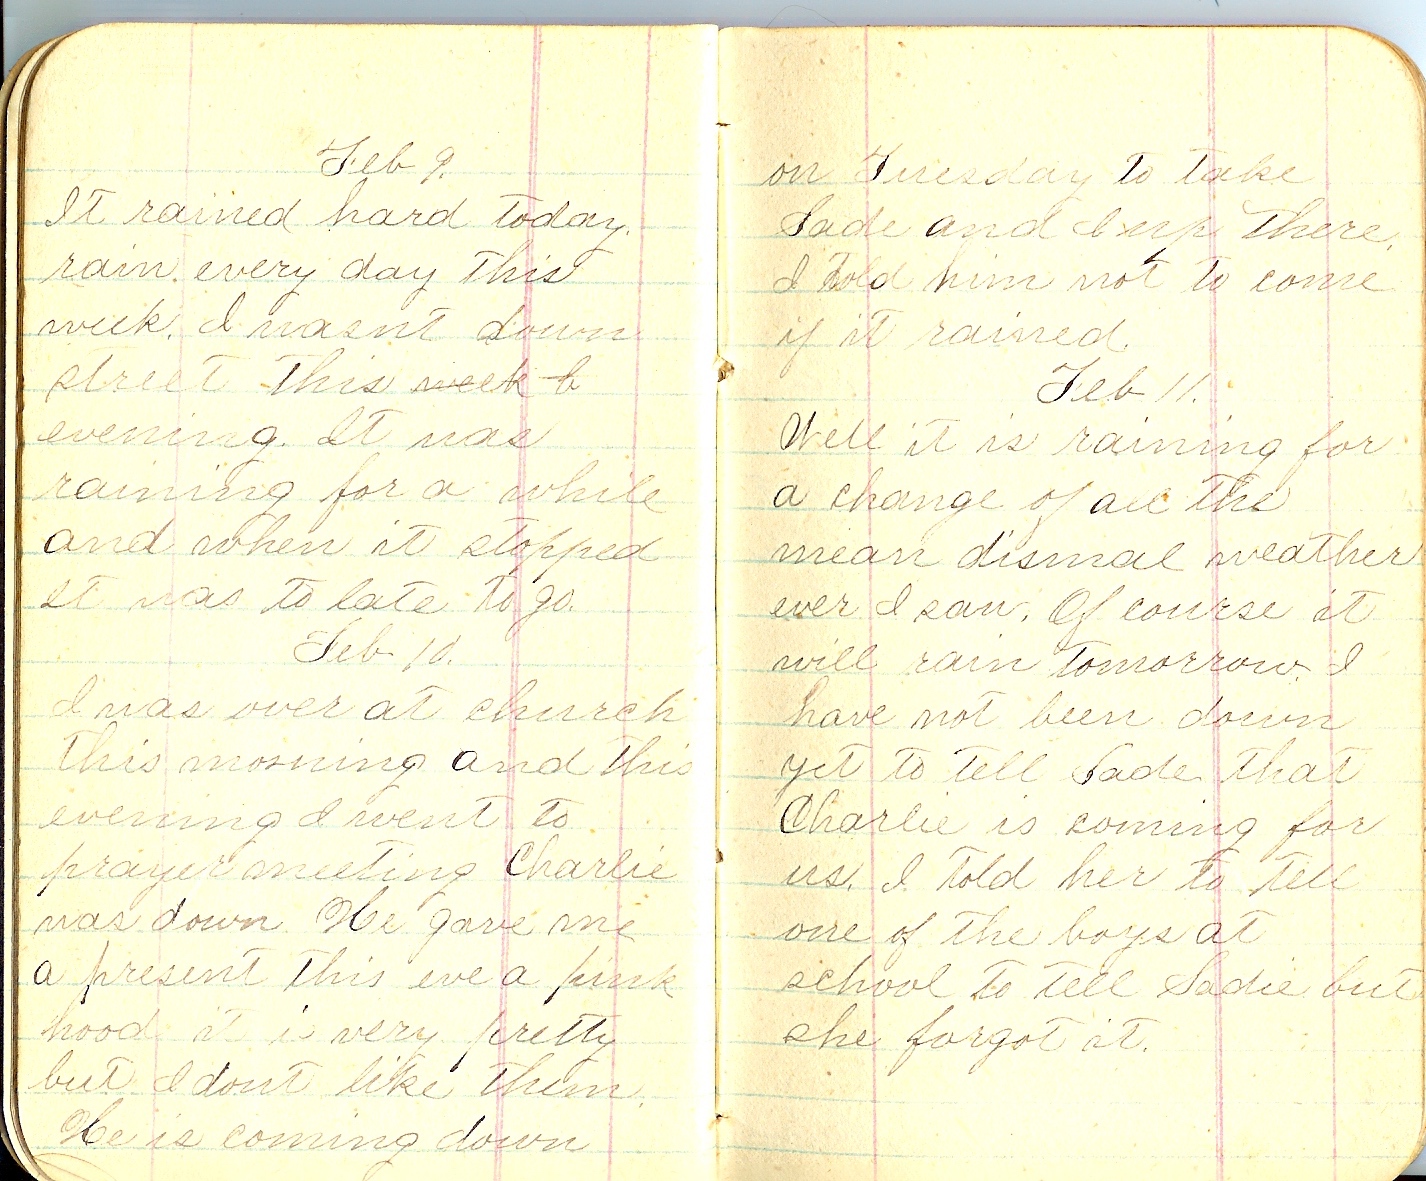 Feb 9.
It rained hard today.
rain every day this
week. I wasnt down
street this week b
evening. It was
raining for a while
and when it stopped
it was to late to go.
Feb 10.
I was over at church
this morning and this
evening I went to
prayer meeting Charlie
was down He gave me
a present this eve a pink
hood it is very pretty
but I dont like them.
He is coming down
on Tuesday to take
Sade and I up there.
I told him not to come
if it rained.
Feb 11.
Well it is raining for
a change of all the
mean dismal weather
ever I saw. Of course it
will rain tomorrow. I
have not been down
yet to tell Sade that
Charlie is coming for
us. I told her to tell
one of the boys at
school to tell Sadie but
she forgot it.